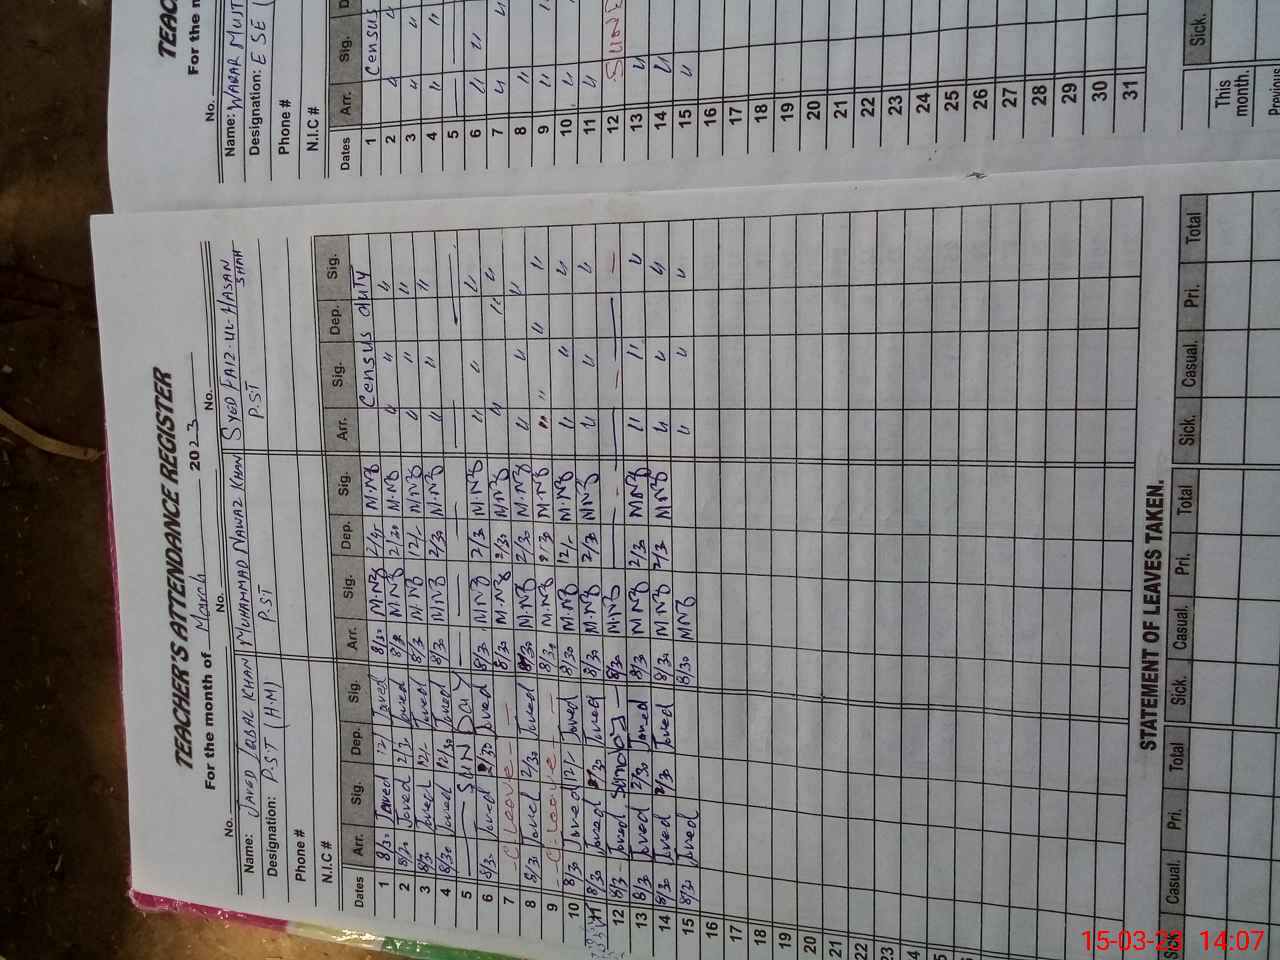 TEACHER'S ATTENDANCE REGISTER
For the month of March 2023
No. No. No.
Name: JAVED IQBAL KHAN MUHAMMAD NAWAZ KHAN SYED FAIZ-UL-HASAN SHAH
Designation: P.ST (H.M) P.ST P.ST
Phone #
N.I.C #
Dates Arr. Sig. Dep. Sig. Arr. Sig. Dep. Sig. Arr. Sig. Dep. Sig.
1 8/30 Javed 12/ Javed 8/30 M.NZ M.NZ Census duty
2 8/30 Javed 2/30 Javed 8/30 M.NZ 2/30 M.NZ " " "
3 8/30 Javed 12/- Javed 8/30 M.NZ 12/- MNZ " " "
4 8/30 Javed 12/30 Javed 8/30 M.NZ 2/30 M.NZ " " "
5 SUNDAY
6 8/30 Javed 2/30 Javed 8/30 MNZ 2/30 M.NZ " " "
7 C leave 8/30 M.NZ 2/30 MNZ " " "
8 8/30 Javed 2/30 Javed 8/30 M.NZ 2/30 M.NZ " " "
9 C. leave 8/30 M.NZ 2/30 M.NZ " " " "
10 8/30 Javed 12/- Javed 8/30 M.NZ 12/- M.NZ " " "
11 8/30 Javed 2/30 Javed 8/30 M.NZ 2/3 MNZ " " "
12 8/3 Javed Sunday 8/30 M.NZ
13 8/30 Javed 2/30 Javed 8/3 M NZ 2/30 MNZ " " "
14 8/30 Javed 2/3 Javed 8/30 M NZ 2/3 MNZ " " "
15 8/30 Javed 8/30 MNZ " " "
16
17
18
19
20
21
22
23
STATEMENT OF LEAVES TAKEN.
Sick Casual. Pri. Total Sick. Casual. Pri. Total Sick. Casual. Pri. Total
TEAC
For the m
No.
Name: WAQAR MUJT
Designation: E S E
Phone #
N.I.C #
Dates Arr. Sig. D
1 Census
2 " "
3 " "
4 " "
5
6 " "
7 " "
8 "
9 " "
10 "
11 "
12 SUND
13 "
14 "
15 "
16
17
18
19
20
21
22
23
24
25
26
27
28
29
30
31
Sick.
This month.
Previous
15-03-23 14:07